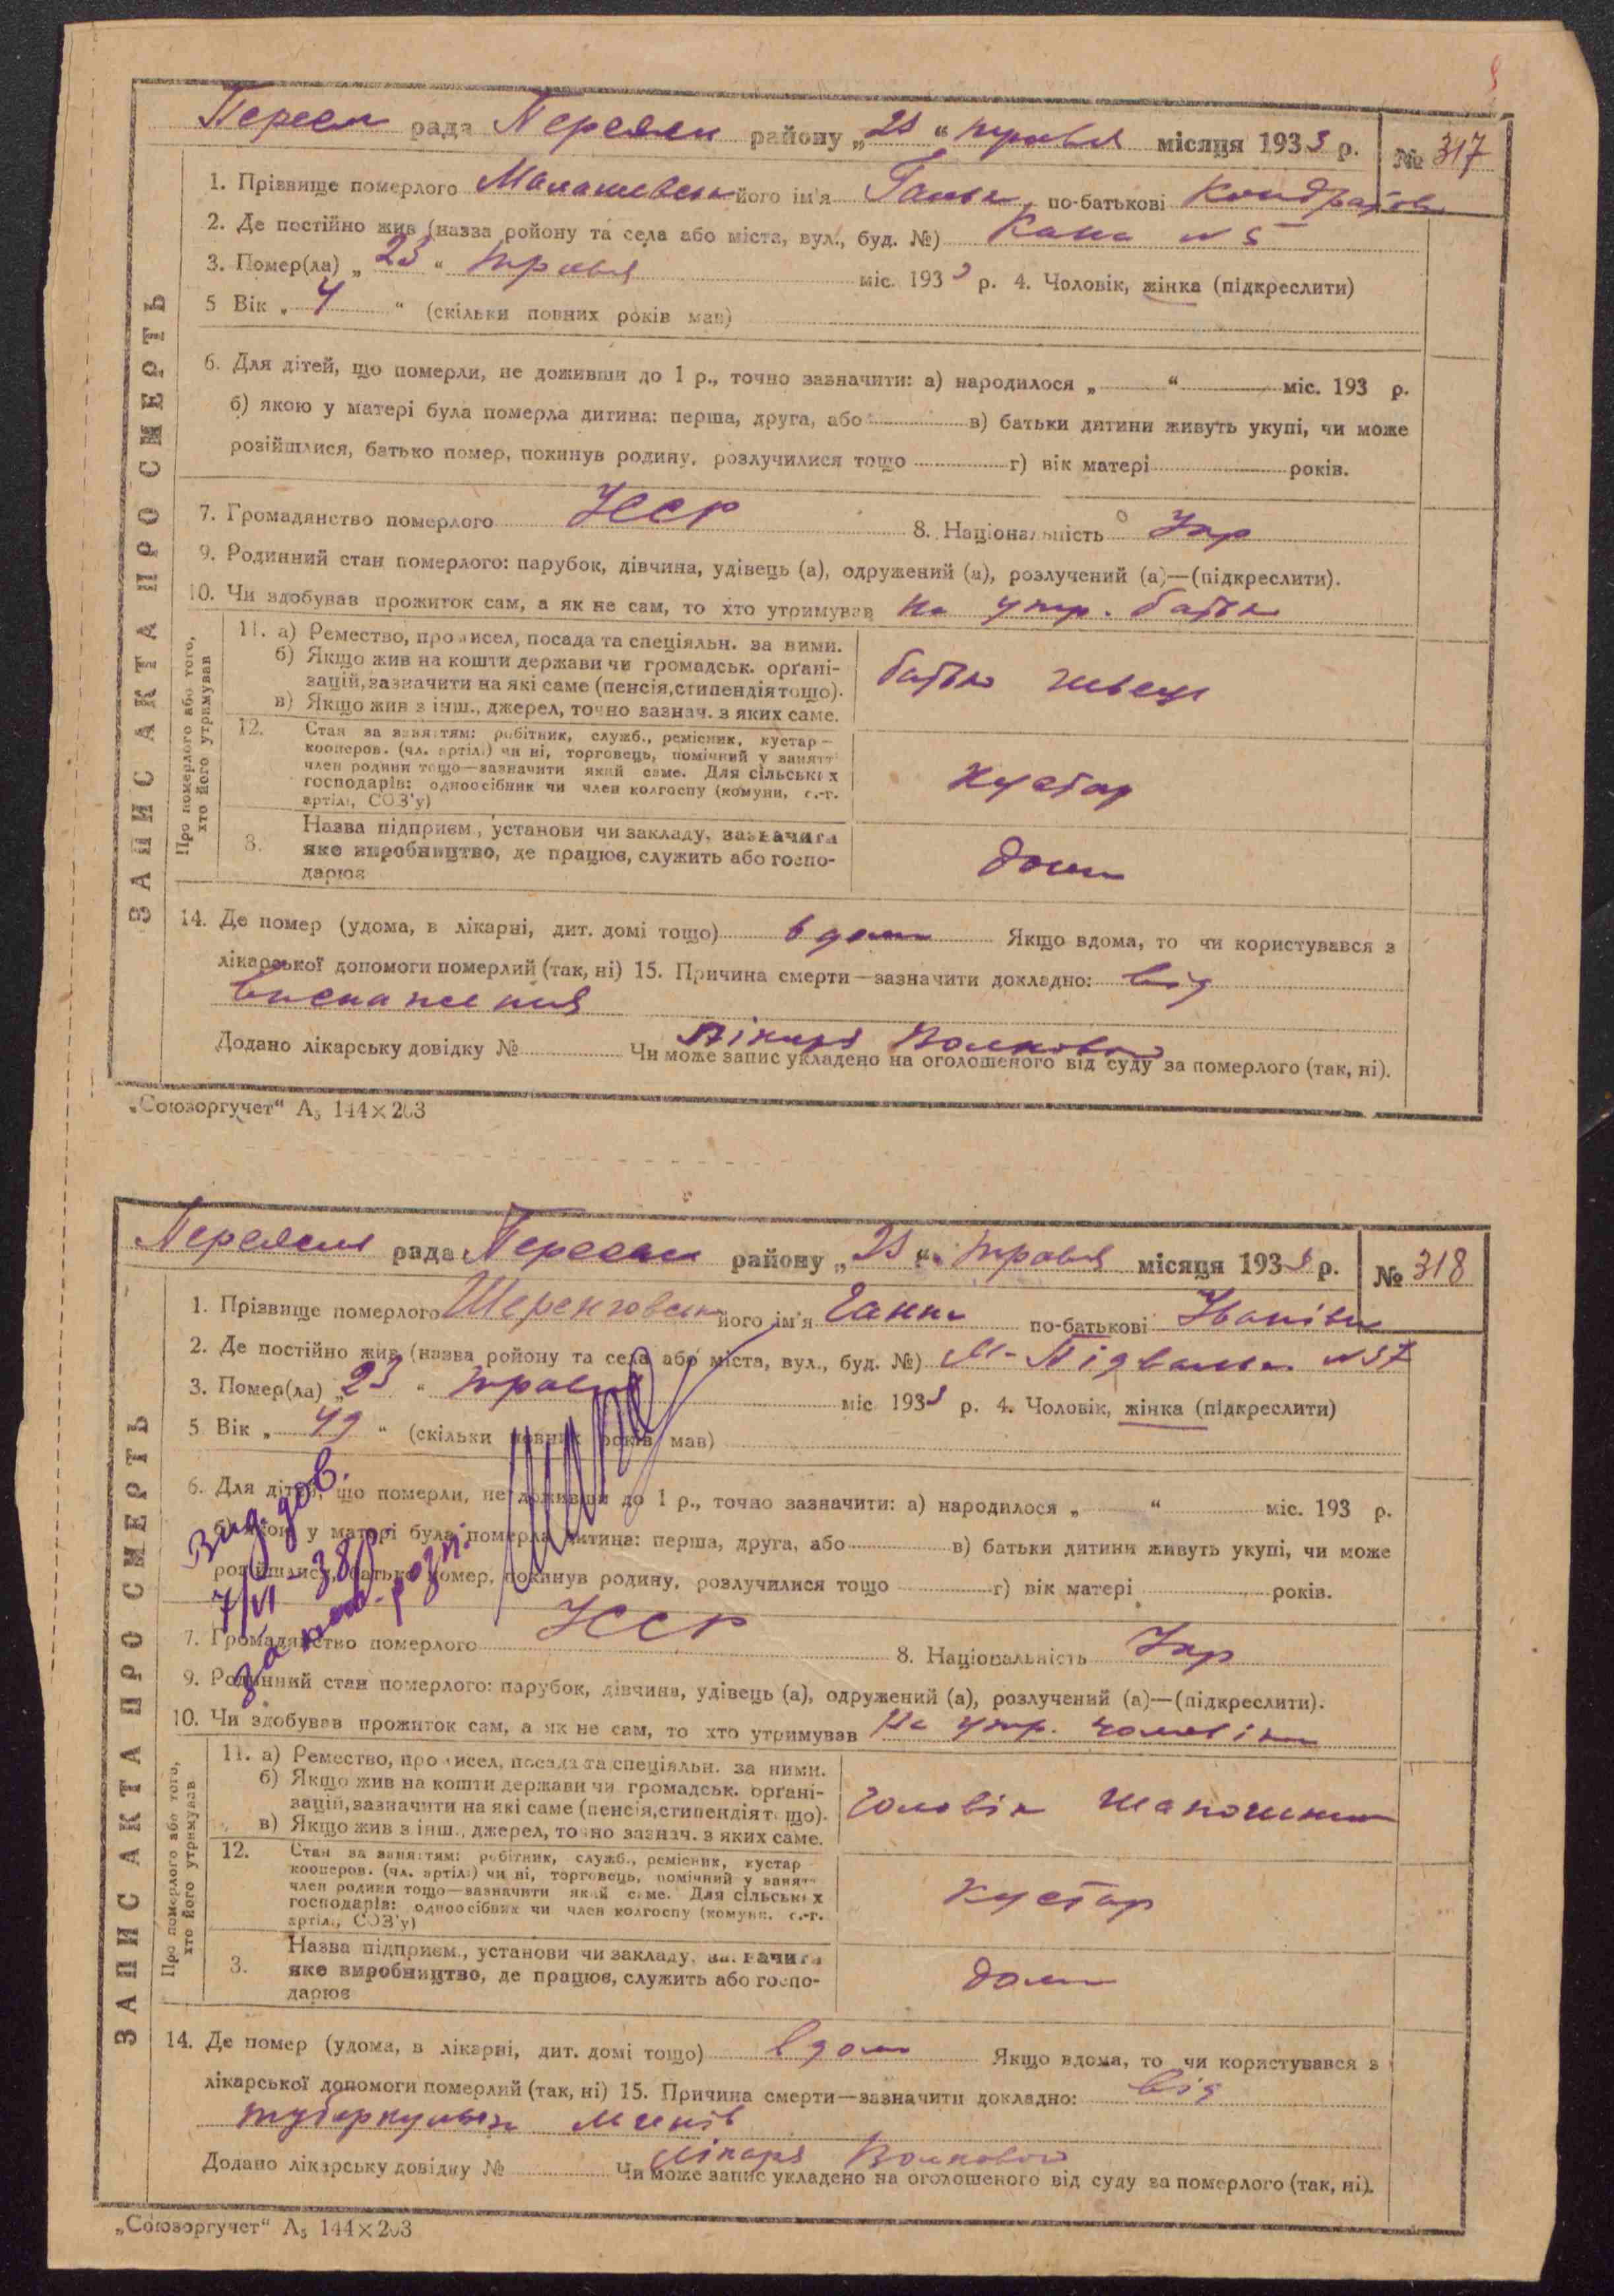 Переяс рада Переясл району „25 “ травня місяця 1933 р. № 317
1. Прізвище померлого його ім'я Ганна по-батькові Кондратов
2. Де постійно жив (назва ройону та села або міста, вул., буд. №) № 5
3. Помер(ла) „ 23 “ травня міс. 1933 р. 4. Чоловік, жінка (підкреслити)
5 Вік „ 4 “ (скільки повних років мав)
6. Для дітей, що померли, не доживши до 1 р., точно зазначити: а) народилося „ “ міс. 193 р.
б) якою у матері була померла дитина: перша, друга, або в) батьки дитини живуть укупі, чи може
розійшлися, батько помер, покинув родину, розлучилися тощо г) вік матері років.
7. Громадянство померлого УССР 8. Національність Укр
9. Родинний стан померлого: парубок, дівчина, удівець (а), одружений (а), розлучений (а)—(підкреслити).
10. Чи здобував прожиток сам, а як не сам, то хто утримував На утр. батька
ЗАПИС АКТА ПРО СМЕРТЬ
Про померлого або того, хто його утримував
11. а) Ремество, промисел, посада та спеціяльн. за ними.
б) Якщо жив на кошти держави чи громадськ. органі-
зацій, зазначити на які саме (пенсія, стипендія тощо).
в) Якщо жив з інш., джерел, точно зазнач. з яких саме.
батько швець
12. Стан за заняттям: робітник, служб., ремісник, кустар—
кооперов. (чл. артілі) чи ні, торговець, помічний у занятт
член родини тощо—зазначити який саме. Для сільських
господарів: одноосібник чи член колгоспу (комуни, с.-г.
артілі, СОЗ'у)
Кустар
3. Назва підприєм., установи чи закладу, зазначити
яке виробництво, де працює, служить або госпо-
дарює
дома
14. Де помер (удома, в лікарні, дит. домі тощо) вдома Якщо вдома, то чи користувався з
лікарської допомоги померлий (так, ні) 15. Причина смерти—зазначити докладно: від
виснаження
Лікаря Волкової
Додано лікарську довідку № Чи може запис укладено на оголошеного від суду за померлого (так, ні).
„Союзоргучет“ А5 144×203
Переясл рада Переясл району „25 “ травня місяця 1933 р. № 318
1. Прізвище померлого його ім'я Ганна по-батькові Іванівна
2. Де постійно жив (назва ройону та села або міста, вул., буд. №) М-Підвальна № 37
3. Помер(ла) „ 23 “ травня міс 1933 р. 4. Чоловік, жінка (підкреслити)
5 Вік „ 49 “ (скільки повних років мав)
6. Для дітей, що померли, не доживши до 1 р., точно зазначити: а) народилося „ “ міс. 193 р.
б) якою у матері була померла дитина: перша, друга, або в) батьки дитини живуть укупі, чи може
розійшлися, батько помер, покинув родину, розлучилися тощо г) вік матері років.
Вид. дов.
7/VI-38р.
7. Громадянство померлого УССР 8. Національність Укр
9. Родинний стан померлого: парубок, дівчина, удівець (а), одружений (а), розлучений (а)—(підкреслити).
10. Чи здобував прожиток сам, а як не сам, то хто утримував На утр. чоловіка
ЗАПИС АКТА ПРО СМЕРТЬ
Про померлого або того, хто його утримував
11. а) Ремество, промисел, посада та спеціяльн. за ними.
б) Якщо жив на кошти держави чи громадськ. органі-
зацій, зазначити на які саме (пенсія, стипендія тощо).
в) Якщо жив з інш., джерел, точно зазнач. з яких саме.
Чоловік шапошник
12. Стан за заняттям: робітник, служб., ремісник, кустар
кооперов. (чл. артілі) чи ні, торговець, помічний у занятт
член родини тощо—зазначити який саме. Для сільських
господарів: одноосібник чи член колгоспу (комуни, с.-г.
артілі, СОЗ'у)
Кустар
3. Назва підприєм., установи чи закладу, зазначити
яке виробництво, де працює, служить або госпо-
дарює
дома
14. Де помер (удома, в лікарні, дит. домі тощо) вдома Якщо вдома, то чи користувався з
лікарської допомоги померлий (так, ні) 15. Причина смерти—зазначити докладно: від
туберкульоза легенів
Лікаря Волкової
Додано лікарську довідку № Чи може запис укладено на оголошеного від суду за померлого (так, ні).
„Союзоргучет“ А5 144×203